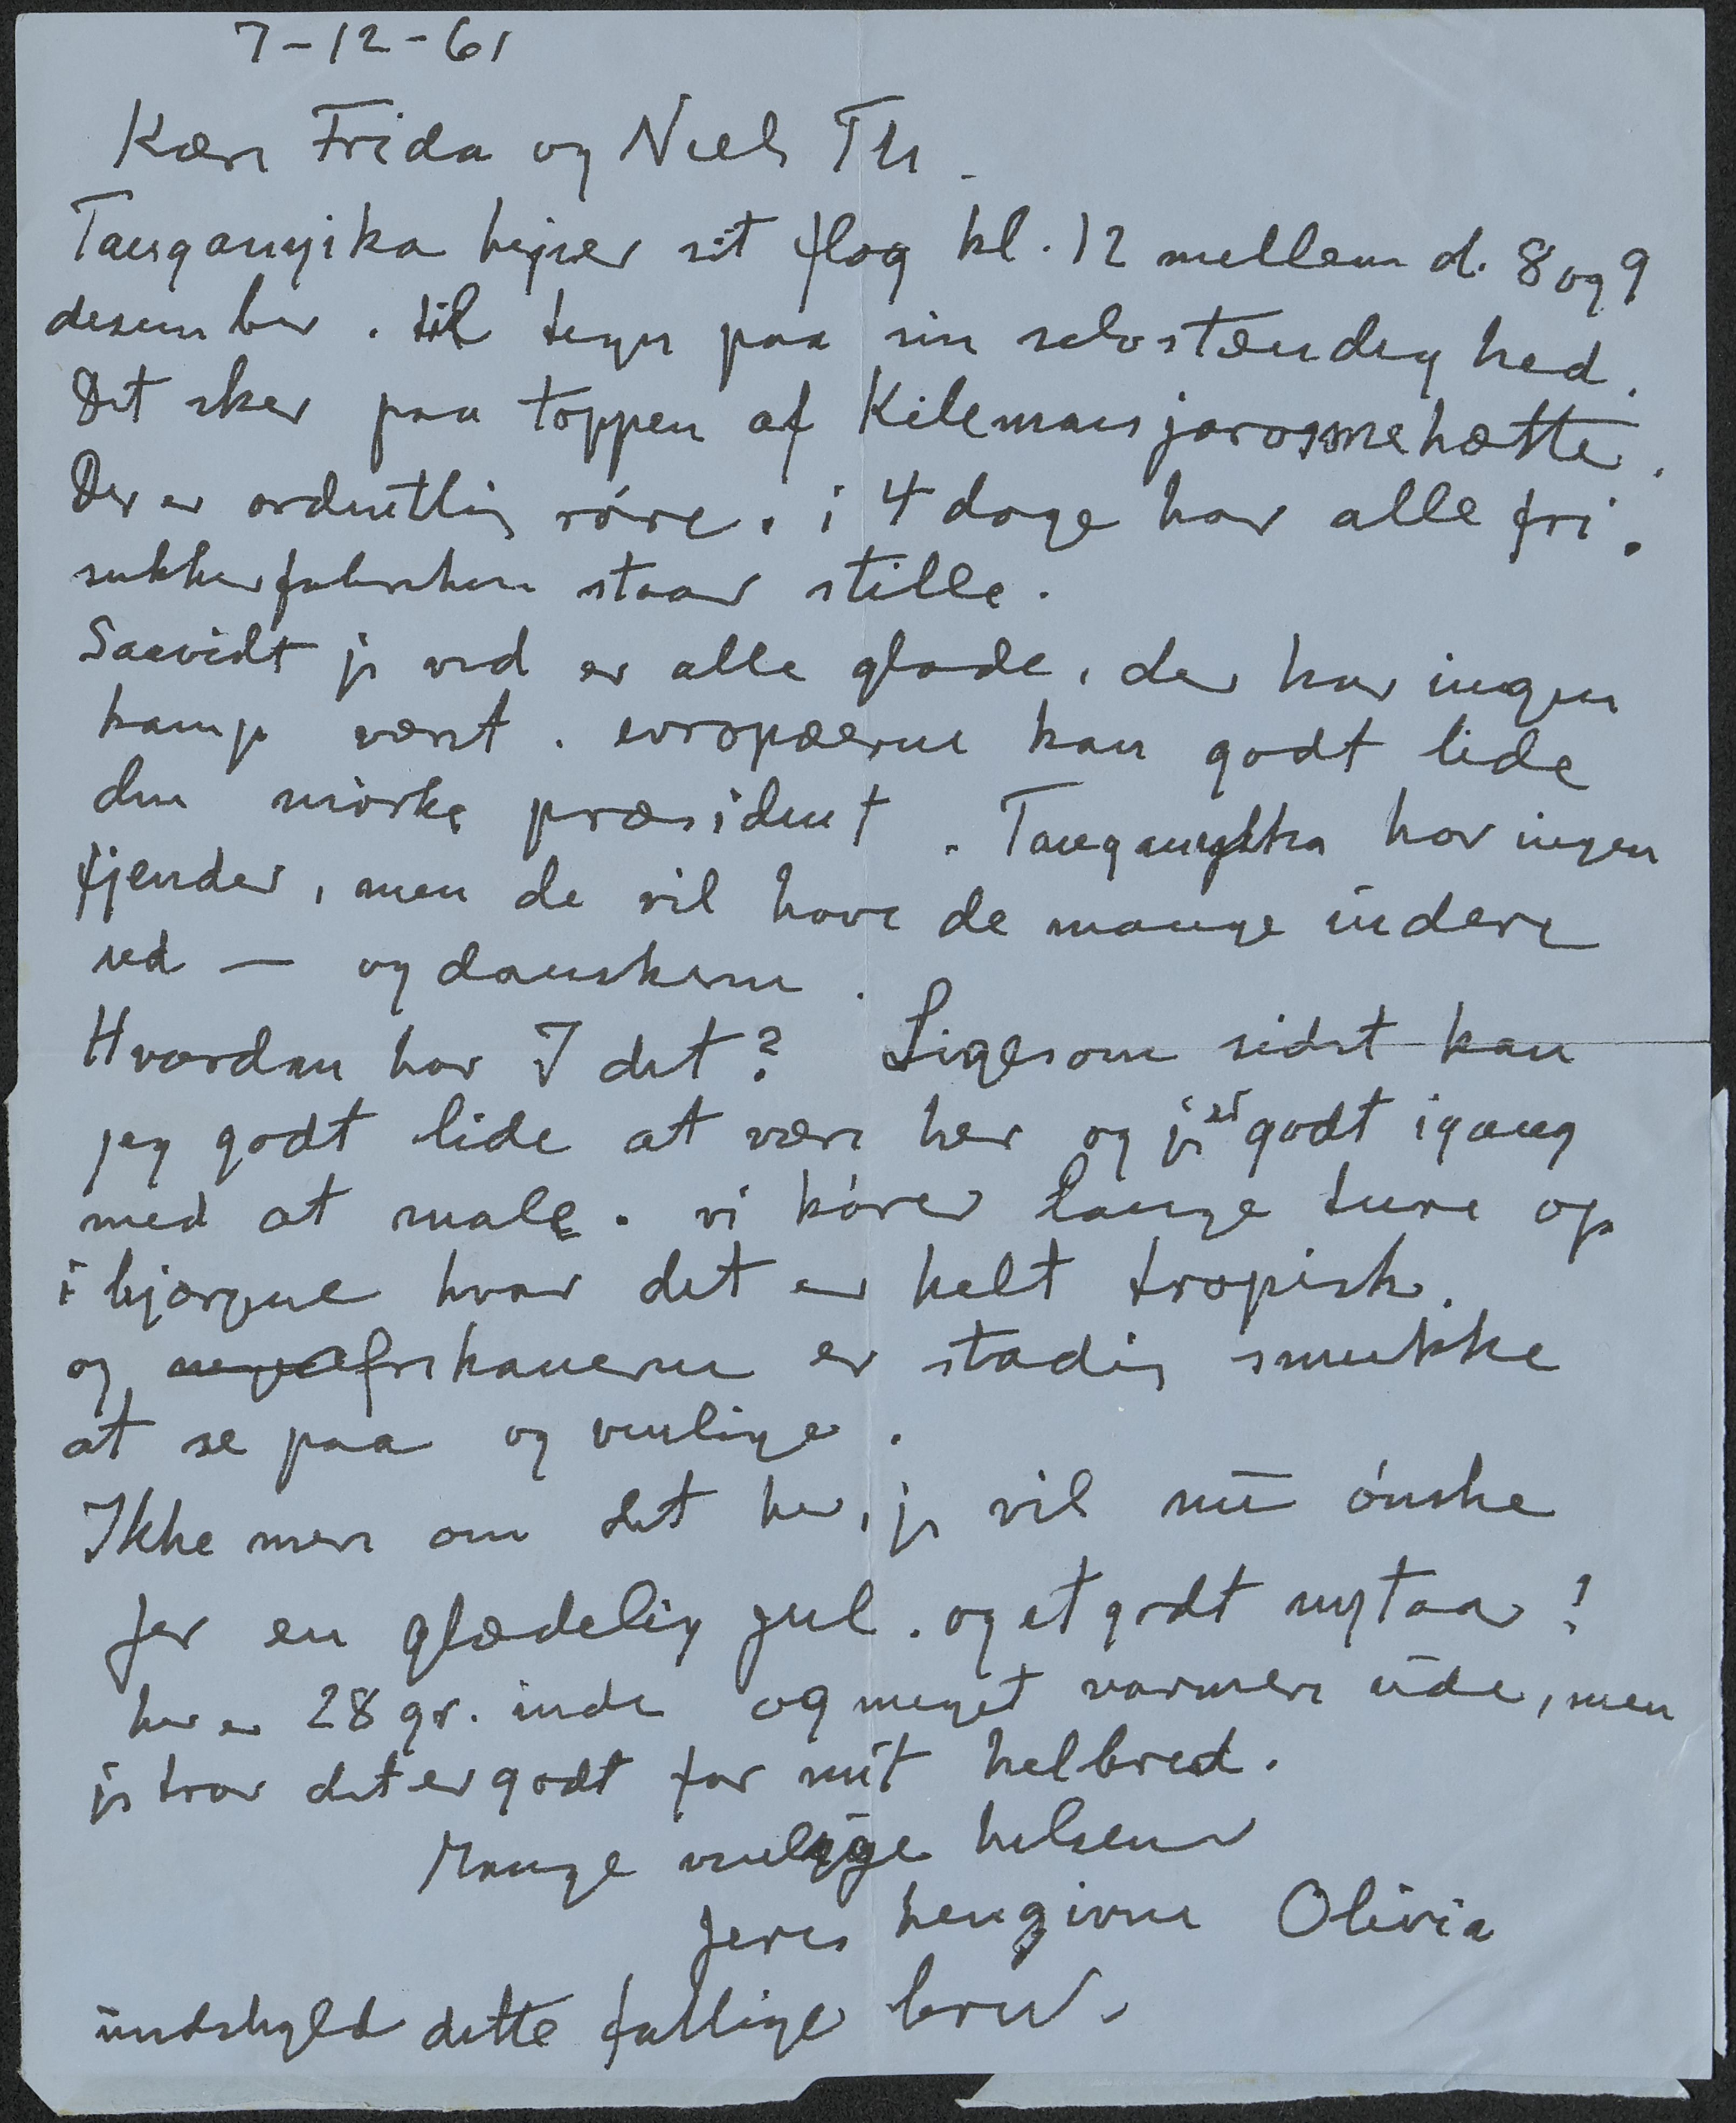 7-12-61
Kære Frida og Niels Th.
Tanganyika hejser sit flag kl. 12 mellem d. 8 og 9
desember. til tegn paa sin selvstændighed.
Det sker paa toppen af Kilemansjarosnehætte.
Der er ordentlig røre. i 4 dage har alle fri.
sukkerfabriken staar stille.
Saavidt jg ved er alle glade, der har ingen
kamp været. evropæerne kan godt lide
den mørke præsident. Tanganyika har ingen
fjender, men de vil have de mange indere
ud — og danskerne.
Hvordan har I det? Ligesom sidst kan
jeg godt lide at være her og jg er godt igang
med at male. vi kører lange ture op
i bjærgene hvor det er helt tropisk.
og afrikanerne er stadig smukke
at se paa og venlige.
Ikke mere om det her, jg vil nu ønske
Jer en glædelig jul. og et godt nytaar!
her er 28 gr. inde og meget varmere ude, men
jg tror det er godt for mit helbred.
Mange venlige hilsener
Jeres hengivne Olivia
undskyld dette fattige brev.